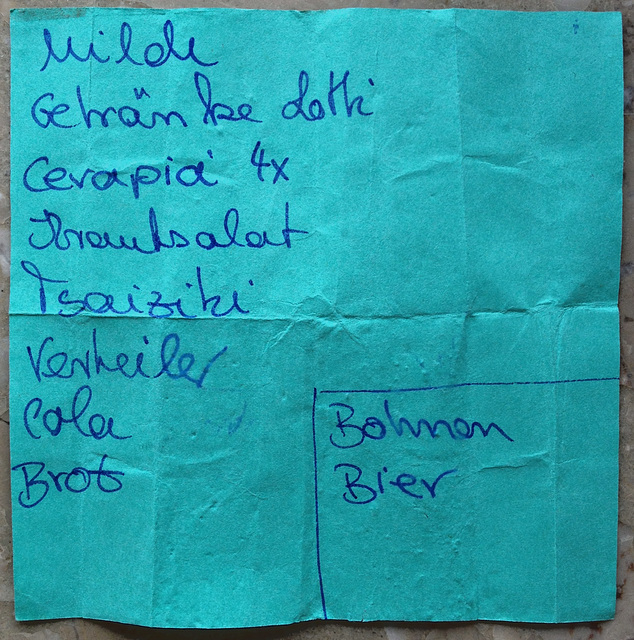 Milch
Getränke Lotti
Cevapici 4x
Krautsalat
Tsaiziki
Verteiler
Cola
Brot
Bohnen
Bier